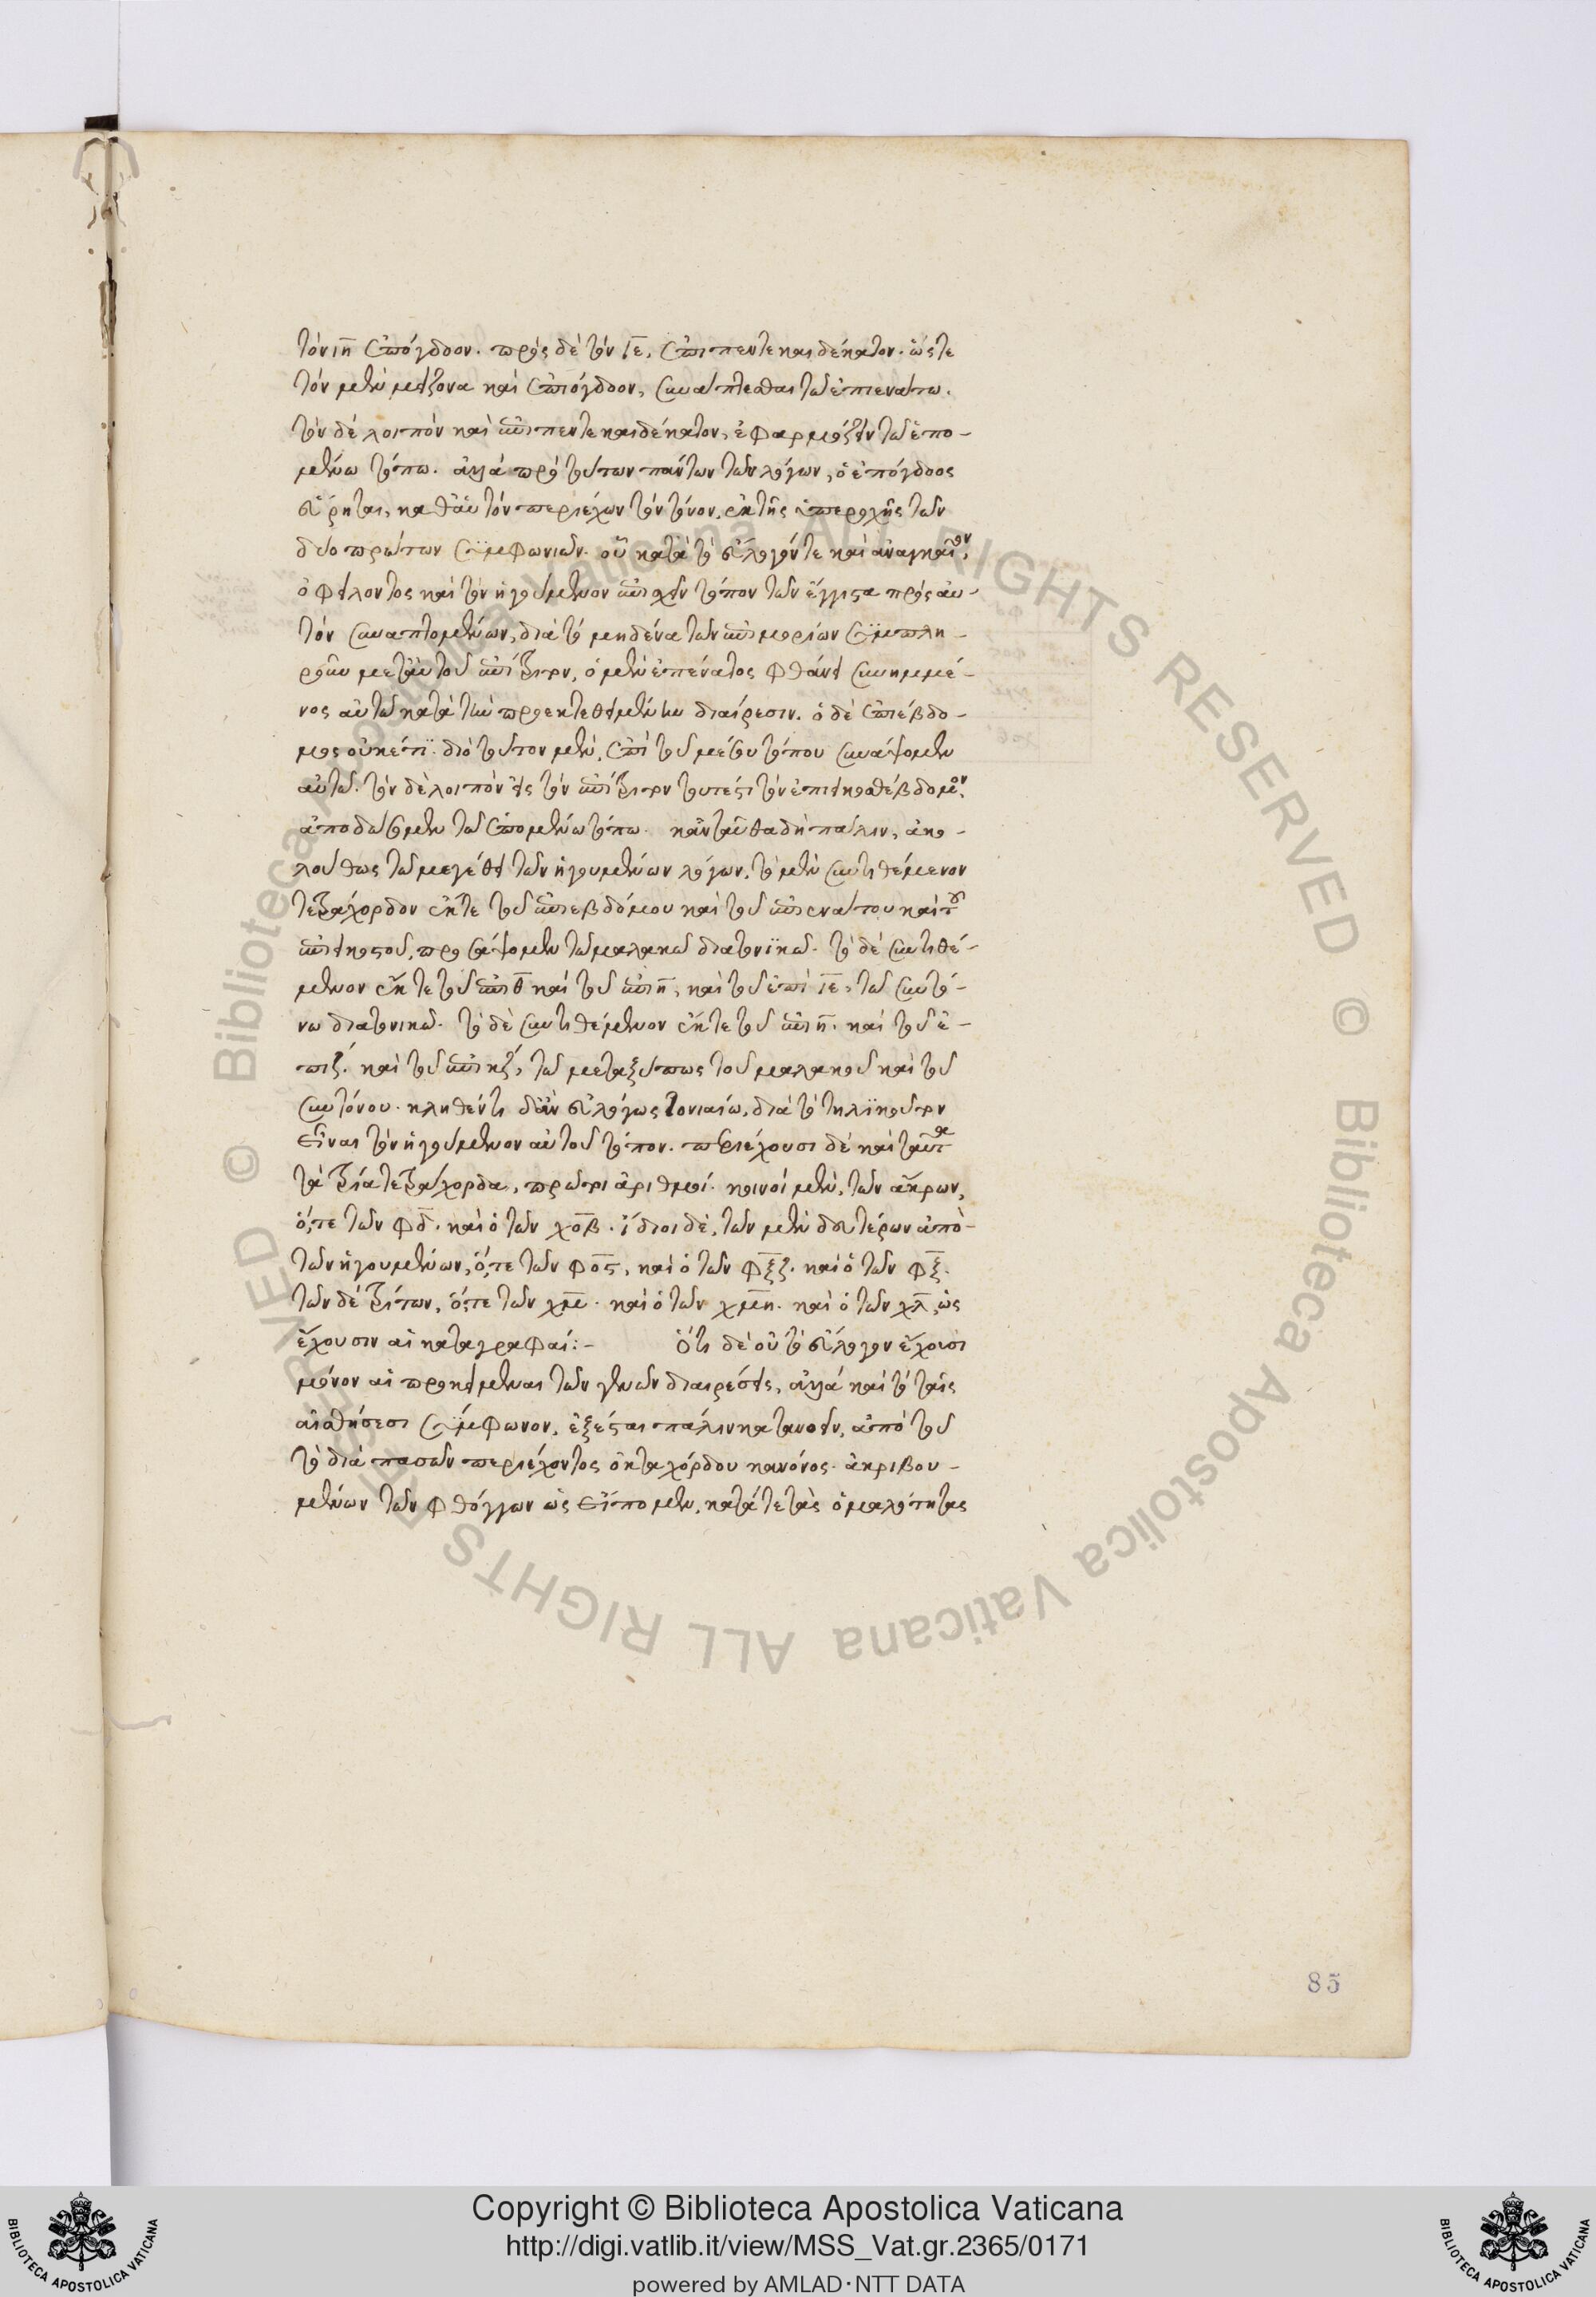 τὸν ιη ἐπόγδοον. πρὸς δὲ τὸν ιε, ἐπιπεντεκαιδέκατον. ὥστε
τὸν μὲν μείζονα καὶ ἐπόγδοον, συνάπτεσθαι τῶ ἐπιενάτω.
τὸν δὲ λοιπὸν καὶ ἐπιπεντεκαιδέκατον, ἐφαρμόζειν τῶ ἑπο-
μένω τόπω. ἀλλὰ πρὸ τούτων πάντων τῶν λόγων, ὁ ἐπόγδοος
εὕρηται, καθ' αὑτὸν περιέχων τὸν τόνον, ἐκ τῆς ὑπεροχῆς τῶν
δύο πρώτων συμφωνιῶν. οὗ κατὰ τὸ εὔλογόν τε καὶ ἀναγκαῖον,
ὀφείλοντος καὶ τὸν ἡγούμενον ἐπισχεῖν τόπον τῶν ἔγγιστα πρὸς αυ-
τὸν συναπτομένων, διὰ τὸ μηδένα τῶν ἐπιμορίων συμπλη-
ροῦν μετ' αὐτοῦ ἐπίτριτον, ὁ μὲν ἐπιένατος φθάνει συνημμέ-
νος αὐτῶ κατὰ τὴν προεκτεθειμένην διαίρεσιν. ὁ δὲ ἐπιέβδο-
μος οὐκέτι. διὸ τοῦτον μὲν, ἐπὶ τοῦ μέσου τόπου συνάψομεν
αὐτῶ. τὸν δὲ λοιπὸν εἰς τὸν ἐπίτριτον τουτέστι τὸν ἐπιεικοσθέβδομον,
ἀποδώσομεν τῶ ἑπομένω τόπω. κἀνταῦθα δὴ πάλιν, ἀκο-
λούθως τῶ μεγέθει τῶν ἡγουμένων λόγων, τὸ μὲν συντιθέμενον
τετράχορδον ἔκ τε τοῦ ἐπιεβδόμου καὶ τοῦ ἐπιενάτου καὶ τοῦ
ἐπιεικοστοῦ, προσάψομεν τῶ μαλακῶ διατονικῶ. τὸ δὲ συντιθέ-
μενον ἔκ τε τοῦ ἐπὶ θ καὶ τοῦ ἐπὶ η, καὶ τοῦ ἐπὶ ιε, τῶ συντό-
νω διατονικῶ. τὸ δὲ συντιθέμενον ἔκ τε τοῦ ἐπὶ η. καὶ τοῦ ἐ-
πὶ ζ. καὶ τοῦ ἐπὶ κζ, τῶ μεταξύ πως τοῦ μαλακοῦ καὶ τοῦ
συντόνου. κληθέντι δ' ἂν εὐλόγως τονιαίω, διὰ τὸ τηλικοῦτον
εἶναι τὸν ἡγούμενον αὐτοῦ τόπον. περιέχουσι δὲ καὶ ταῦτα
τὰ τρία τετράχορδα, πρῶτοι ἀριθμοί. κοινοὶ μὲν, τῶν ἄκρων,
ὅ, τε τῶν φδ. καὶ ὁ τῶν χοβ. ἴδιοι δὲ, τῶν μὲν δευτέρων ἀπὸ
τῶν ἡγουμένων, ὅ, τε τῶν φος, καὶ ὁ τῶν φξζ. καὶ ὁ τῶν φξ.
τῶν δὲ τρίτων, ὅ, τε τῶν χμ. καὶ ὁ τῶν χμη. καὶ ὁ τῶν χλ, ὡς
ἔχουσιν αἱ καταγραφαί:- Ὅτι δὲ οὐ τὸ εὔλογον ἔχουσι
μόνον αἱ προκείμεναι τῶν γενῶν διαιρέσεις, ἀλλὰ καὶ τὸ ταῖς
αἰσθήσεσι σύμφωνον, ἐξέσται πάλιν κατανοεῖν, ἀπὸ τοῦ
τὸ διὰ πασῶν περιέχοντος ὀκταχόρδου κανόνος. ἀκριβου-
μένων τῶν φθόγγων ὡς εἴπομεν, κατά τε τὰς ὁμαλότητας
85
© Biblioteca Apostolica Vaticana ALL RIGHTS RESERVED © Biblioteca Apostolica Vaticana ALL RIGHTS RESERVED
Copyright © Biblioteca Apostolica Vaticana
http://digi.vatlib.it/view/MSS_Vat.gr.2365/0171
powered by AMLAD·NTT DATA
BIBLIOTECA APOSTOLICA VATICANA
BIBLIOTECA APOSTOLICA VATICANA